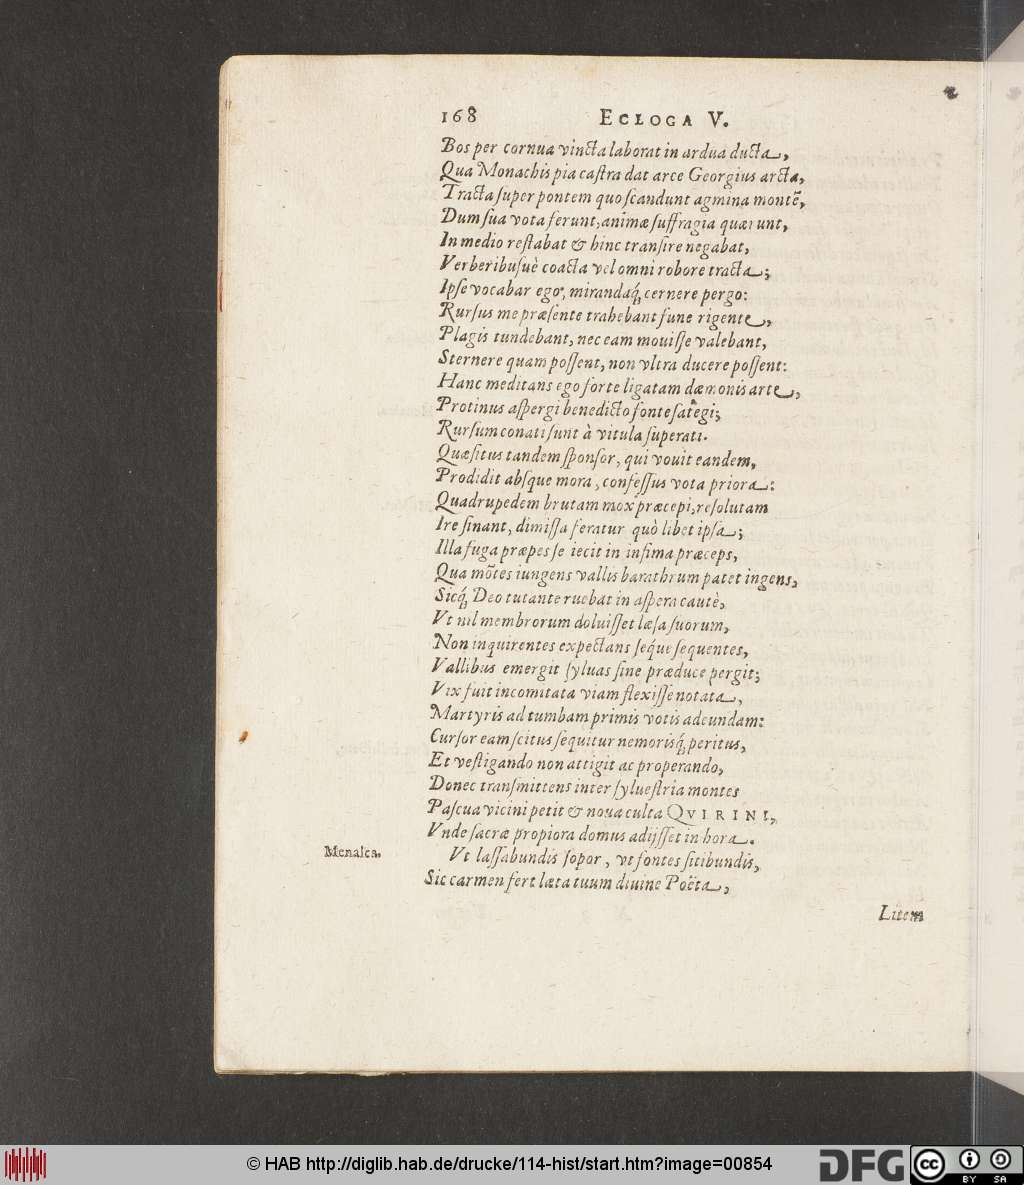 168 ECLOGA V.
Bos per cornua vincta laborat in ardua ducta,
Qua Monachis pia castra dat arce Georgius arcta,
Tracta super pontem quo scandunt agmina montē,
Dum sua vota ferunt, animæ suffragia quærunt,
In medio restabat & hinc transire negabat,
Verberibusuè coacta vel omni robore tracta;
Ipse vocabar ego, mirandaq́; cernere pergo:
Rursus me præsente trahebant fune rigente,
Plagis tundebant, nec eam mouisse valebant,
Sternere quam possent, non vltra ducere possent:
Hanc meditans ego forte ligatam dæmonis arte,
Protinus aspergi benedicto fonte sategi;
Rursum conati sunt à vitula superati.
Quæsitus tandem sponsor, qui vouit eandem,
Prodidit absque mora, confessus vota priora:
Quadrupedem brutam mox præcepi, resolutam
Ire sinant, dimissa feratur quò libet ipsa;
Illa fuga præpes se iecit in infima præceps,
Qua mōtes iungens vallis barathrum patet ingens,
Sicq́; Deo tutante ruebat in aspera cautè,
Vt nil membrorum doluisset læsa suorum,
Non inquirentes expectans seque sequentes,
Vallibus emergit syluas sine præduce pergit;
Vix fuit incomitata viam flexisse notata,
Martyris ad tumbam primis votis adeundam:
Cursor eam scitus sequitur nemorisq́; peritus,
Et vestigando non attigit ac properando,
Donec transmittens inter syluestria montes
Pascua vicini petit & noua culta QVIRINI,
Vnde sacræ propiora domus adijsset in hora.
Menalca. Vt lassabundis sopor, vt fontes sitibundis,
Sic carmen fert læta tuum diuine Poëta,
Litem
© HAB http://diglib.hab.de/drucke/114-hist/start.htm?image=00854
DFG
cc
BY SA